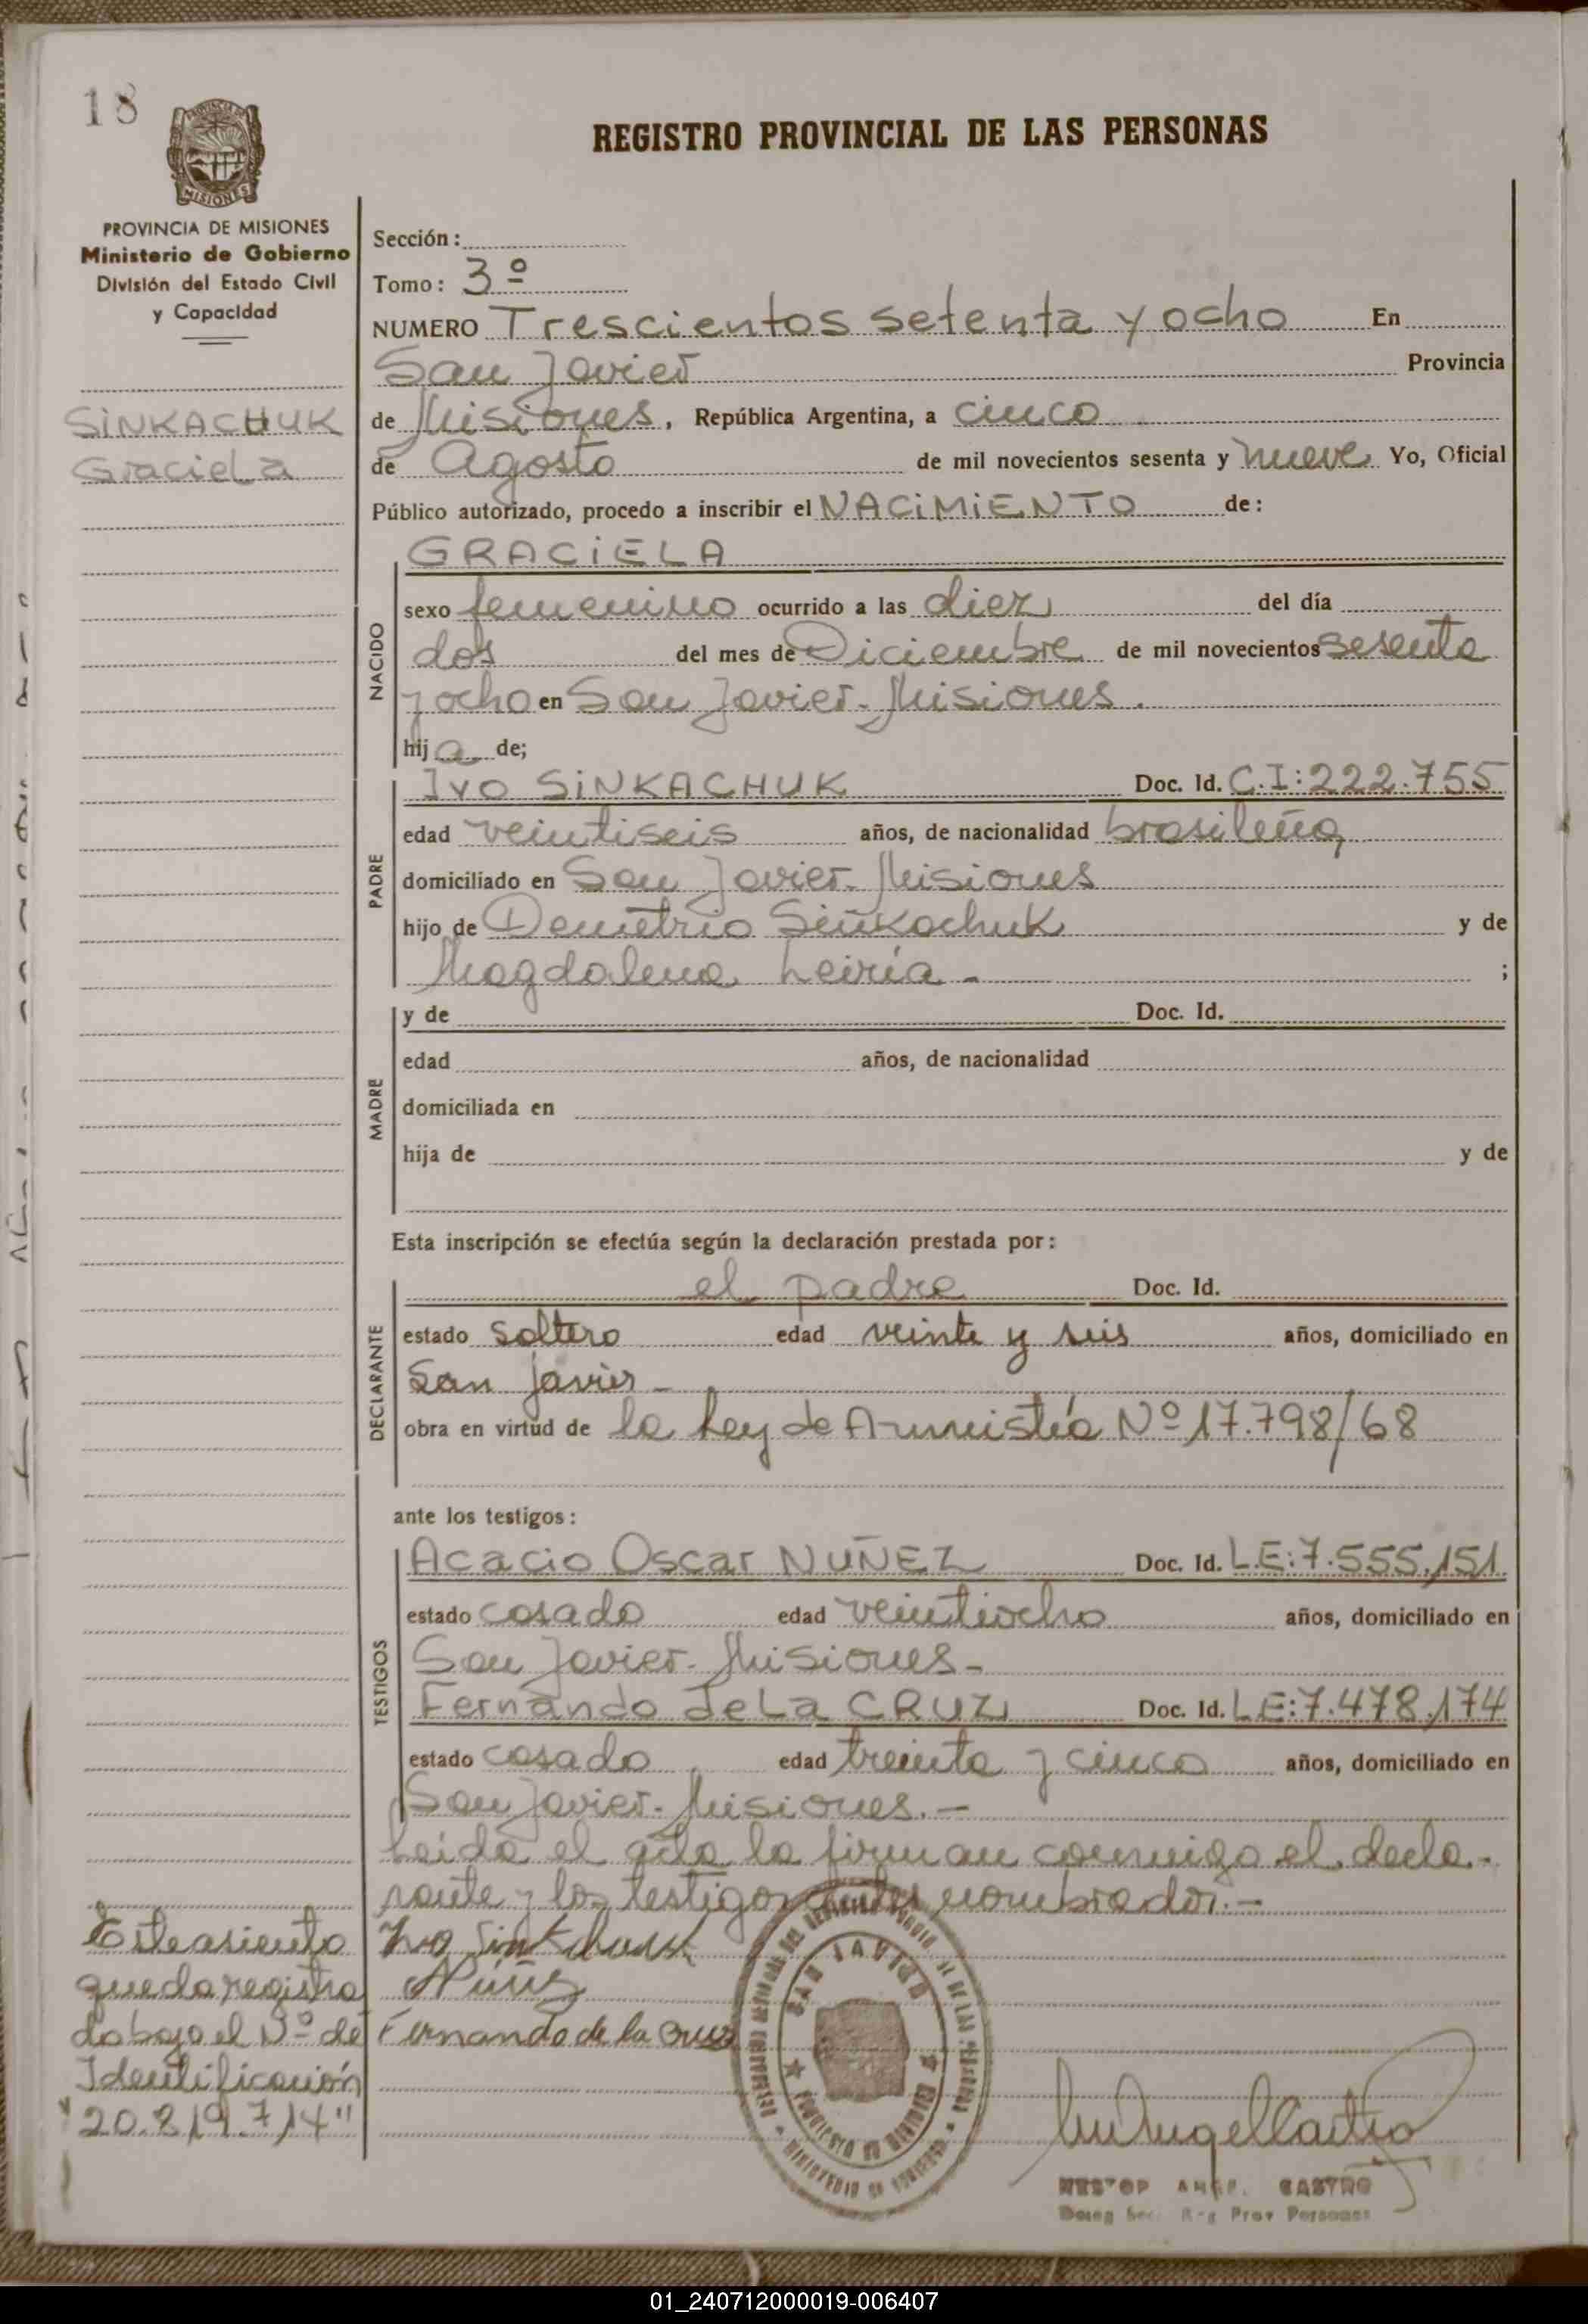 18
REGISTRO PROVINCIAL DE LAS PERSONAS
PROVINCIA DE MISIONES
Ministerio de Gobierno
División del Estado Civil
y Capacidad
SINKACHUK
Graciela
Sección:
Tomo: 3º
NUMERO Trescientos setenta y ocho En
San Javier Provincia
de Misiones, República Argentina, a cinco
de Agosto de mil novecientos sesenta y nueve Yo, Oficial
Público autorizado, procedo a inscribir el NACIMIENTO de:
GRACIELA
NACIDO
sexo femenino ocurrido a las diez del día
dos del mes de Diciembre de mil novecientos sesenta
y ocho en San Javier-Misiones.
hija de;
PADRE
Ivo SINKACHUK Doc. Id. C.I:222.755
edad veintiseis años, de nacionalidad brasileña
domiciliado en San Javier-Misiones
hijo de Demetrio Sinkachuk y de
Magdalena Leiria - ;
MADRE
y de Doc. Id.
edad años, de nacionalidad
domiciliada en
hija de y de
Esta inscripción se efectúa según la declaración prestada por:
DECLARANTE
el padre Doc. Id.
estado soltero edad veinte y seis años, domiciliado en
San Javier -
obra en virtud de la Ley de Amnistía Nº 17.798/68
ante los testigos:
TESTIGOS
Acacio Oscar NUÑEZ Doc. Id. L.E:7.555.151
estado casado edad veintiocho años, domiciliado en
San Javier-Misiones-
Fernando de La CRUZ Doc. Id. L.E:7.478.174
estado casado edad treinta y cinco años, domiciliado en
San Javier-Misiones.-
Leída el acta la firman conmigo el decla-
rante y los testigos antes nombrados.-
Ivo Sinkchuk
Fernando de la Cruz
Este asiento
queda registra
do bajo el Nº de
Identificación
"20.819.714"
SAN JAVIER
NESTOR ANGEL CASTRO
Deleg Sec. Reg Prov Personas
01_240712000019-006407